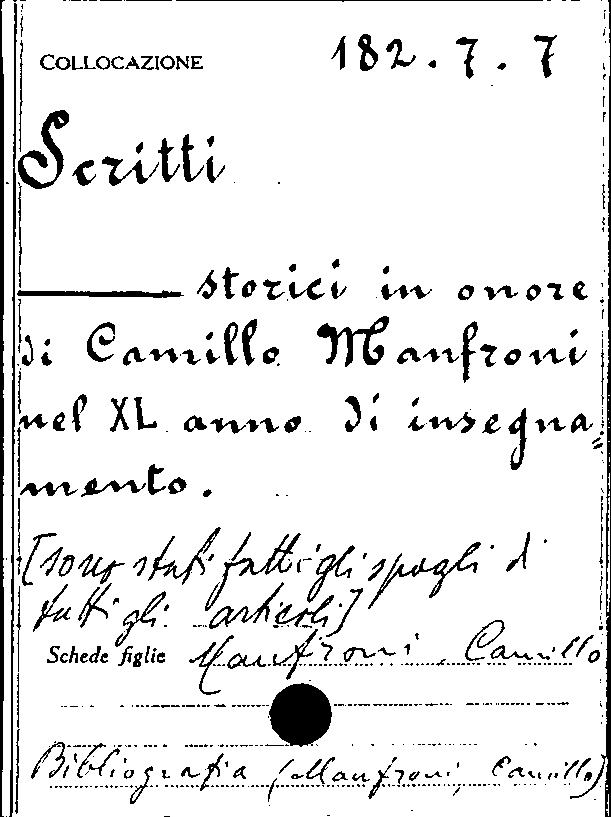 COLLOCAZIONE 182.7.7
Scritti
——— storici in onore
di Camillo Manfroni
nel XL anno di insegna=
mento.
[sono stati fatti gli spogli di
tutti gli articoli]
Schede figlie Manfroni, Camillo
Bibliografia (Manfroni, Camillo)